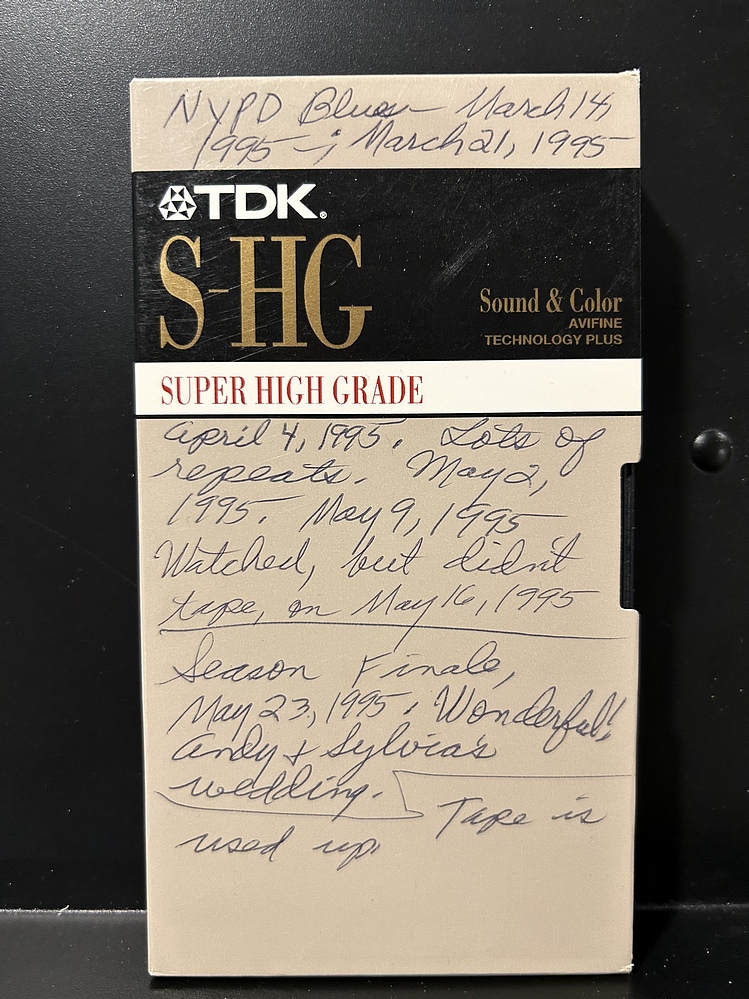 NYPD Blue — March 14,
1995 — ; March 21, 1995
TDK®
S-HG
Sound & Color
AVIFINE
TECHNOLOGY PLUS
SUPER HIGH GRADE
April 4, 1995. Lots of
repeats. May 2,
1995. May 9, 1995
Watched, but didn't
tape, on May 16, 1995
Season Finale,
May 23, 1995. Wonderful!
Andy + Sylvia's
wedding.
Tape is
used up.